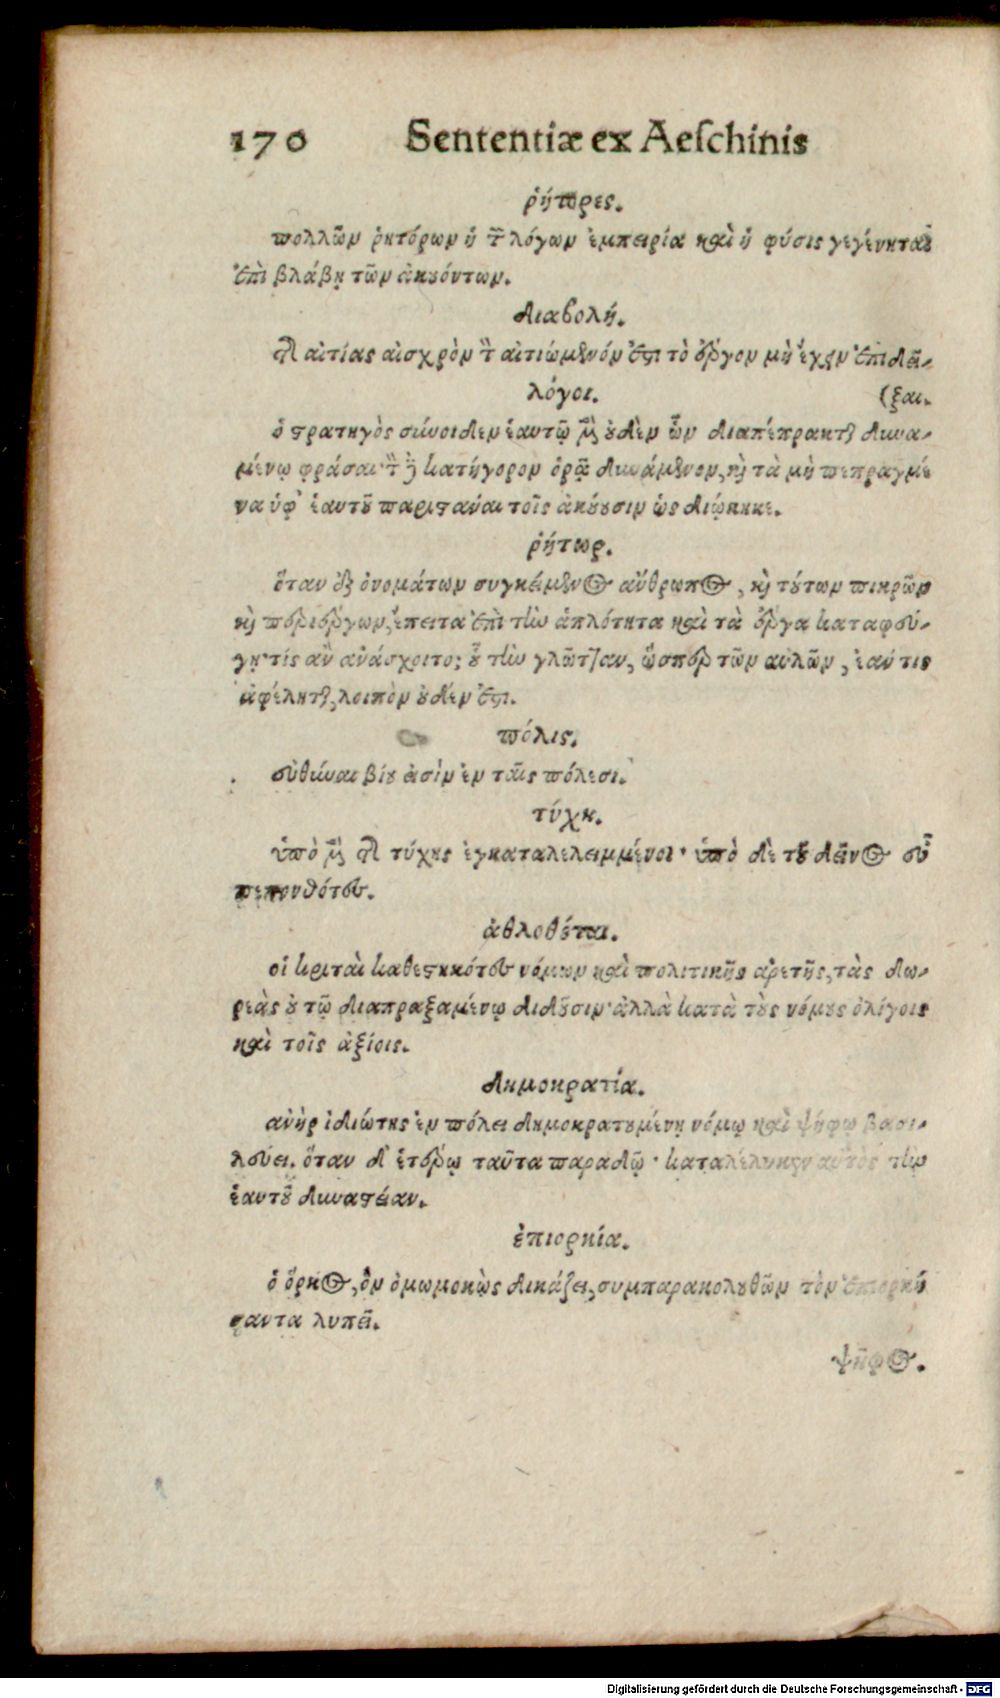 170 Sententiæ ex Aeſchinis
ῥήτορες.
πολλῶν ῥητόρων ἡ τ̃ λόγων ἐμπειρία καὶ ἡ φύσις γεγένηται
ἐπὶ βλάβῃ τῶν ἀκουόντων.
διαβολή.
τῆς αἰτίας αἰσχρὸν τὸν αἰτιώμενόν ἐστι τὸ ἔργον μὴ ἔχειν ἐπιδεῖ-
λόγοι. (ξαι.
ὁ στρατηγὸς σύνοιδεν ἑαυτῷ μὲν οὐδὲν ὧν διαπέπρακται δυνα-
μένῳ φράσαι· τὸν δὲ κατήγορον ὁρᾷ δυνάμενον, καὶ τὰ μὴ πεπραγμέ
να ὑφ' ἑαυτοῦ παριστάναι τοῖς ἀκούουσιν ὡς διῴκηκε.
ῥήτωρ.
ὅταν ἐξ ὀνομάτων συγκείμενος ἄνθρωπος, καὶ τούτων πικρῶν
καὶ περιέργων, ἔπειτα ἐπὶ τὴν ἁπλότητα καὶ τὰ ἔργα καταφεύ-
γῃ· τίς ἂν ἀνάσχοιτο; οὗ τὴν γλῶτταν, ὥσπερ τῶν αὐλῶν, ἐάν τις
ἀφέληται, λοιπὸν οὐδέν ἐστι.
πόλις.
εὐθῦναι βίου εἰσὶν ἐν ταῖς πόλεσι.
τύχη.
ὑπὸ μὲν τῆς τύχης ἐγκαταλελειμμένοι· ὑπὸ δὲ τοῦ δεῖνος εὖ
πεπονθότες.
ἀθλοθέται.
οἱ κριταὶ καθεστηκότες νόμων καὶ πολιτικῆς ἀρετῆς, τὰς δω-
ρεὰς οὐ τῷ διαπραξαμένῳ διδοῦσιν· ἀλλὰ κατὰ τοὺς νόμους ὀλίγοις
καὶ τοῖς ἀξίοις.
δημοκρατία.
ἀνὴρ ἰδιώτης ἐν πόλει δημοκρατουμένῃ νόμῳ καὶ ψήφῳ βασι-
λεύει. ὅταν δ' ἑτέρῳ ταῦτα παραδῷ· καταλέλυκεν αὐτὸς τὴν
ἑαυτοῦ δυναστείαν.
ἐπιορκία.
ὁ ὅρκος, ὃν ὀμωμοκὼς δικάζει, συμπαρακολουθῶν τὸν ἐπιορκή
σαντα λυπεῖ.
ψῆφος.
Digitalisierung gefördert durch die Deutsche Forschungsgemeinschaft - DFG